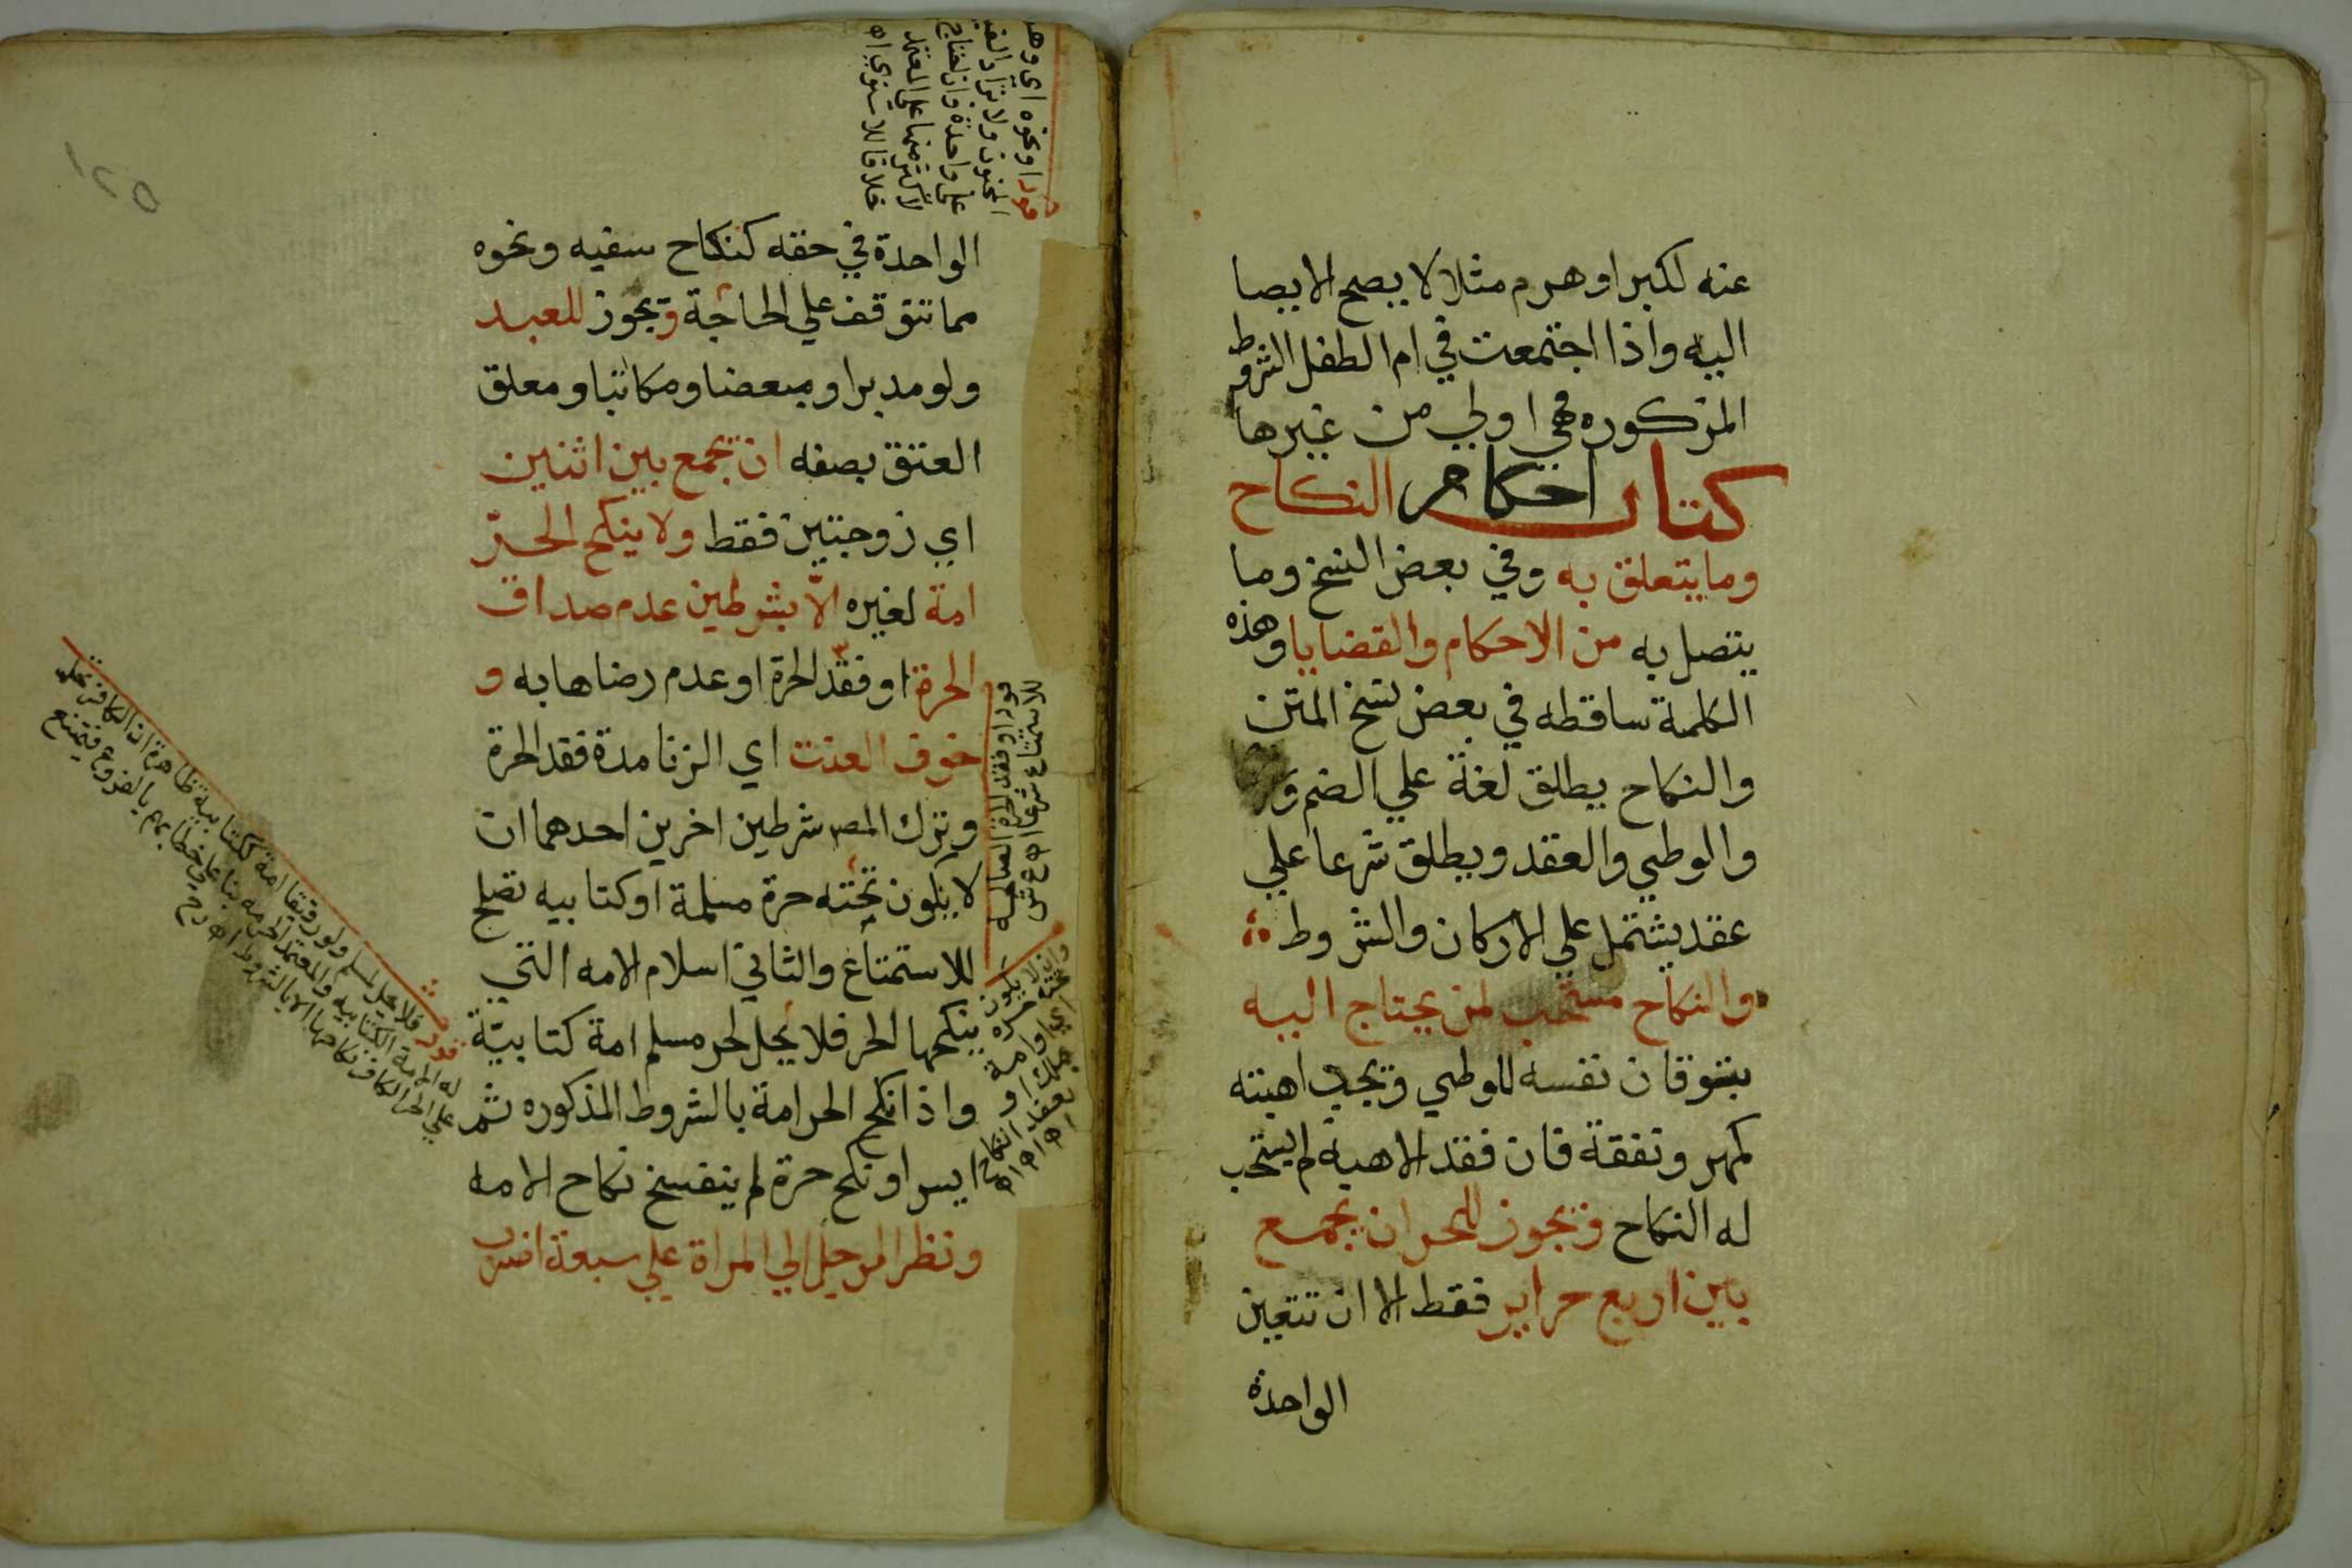 عنه لكبر او هرم مثلا لا يصح الايصا
اليه واذا اجتمعت في ام الطفل الشروط
المذكوره فهي اولي من غيرها
كتاب احكام النكاح
وما يتعلق به وفي بعض النسخ وما
يتصل به من الاحكام والقضايا وهذه
الكلمة ساقطه في بعض نسخ المتن
والنكاح يطلق لغة علي الضم و
والوطي والعقد ويطلق شرعا علي
عقد يشتمل علي الاركان والشروط
والنكاح مستحب لمن يحتاج اليه
بتوقان نفسه للوطي ويجد اهبته
كمهر ونفقة فان فقد الاهبة لم يستحب
له النكاح ويجوز للحر ان يجمع
بين اربع حراير فقط الا ان تتعين
الواحدة
الواحدة في حقه كنكاح سفيه ونحوه
مما تتوقف علي الحاجة ويجوز للعبد
ولو مدبرا ومبعضا ومكاتبا ومعلق
العتق بصفه ان يجمع بين اثنين
اي زوجتين فقط ولا ينكح الحر
امة لغيره الا بشرطين عدم صداق
الحرة او فقد الحرة او عدم رضاها به و
خوف العنت اي الزنا مدة فقد الحرة
وترك المص شرطين اخرين احدهما ان
لا يكون تحته حرة مسلمة او كتابيه تصلح
للاستمتاع والثاني اسلام الامه التي
ينكحها الحر فلا يحل لحر مسلم امة كتابية
واذا نكح الحر امة بالشروط المذكوره ثم
ايسر او نكح حرة لم ينفسخ نكاح الامه
ونظر الرجل الي المراة علي سبعة اضرب
قوله ونحوه اي
المجنون ولا تزاد
علي واحدة وان احتاج
لاكثر منها علي المعتمد
خلافا للاسنوي اه
قوله او فقد الحرة الصالحه
للاستمتاع شرعا اه ع ش
وان لا يكون
تحته حرة
اي او امة
بملك او
بعقد النكاح
قوله فلا يحل لمسلم ولو رقيقا امة كتابية ظاهره ان الكافر تحل
له الامة الكتابيه والمعتمد الحرمه بنا علي خطابهم بالفروع فيمتنع
علي الحر الكافر نكاحها الا بالشروط اه
١٢٥